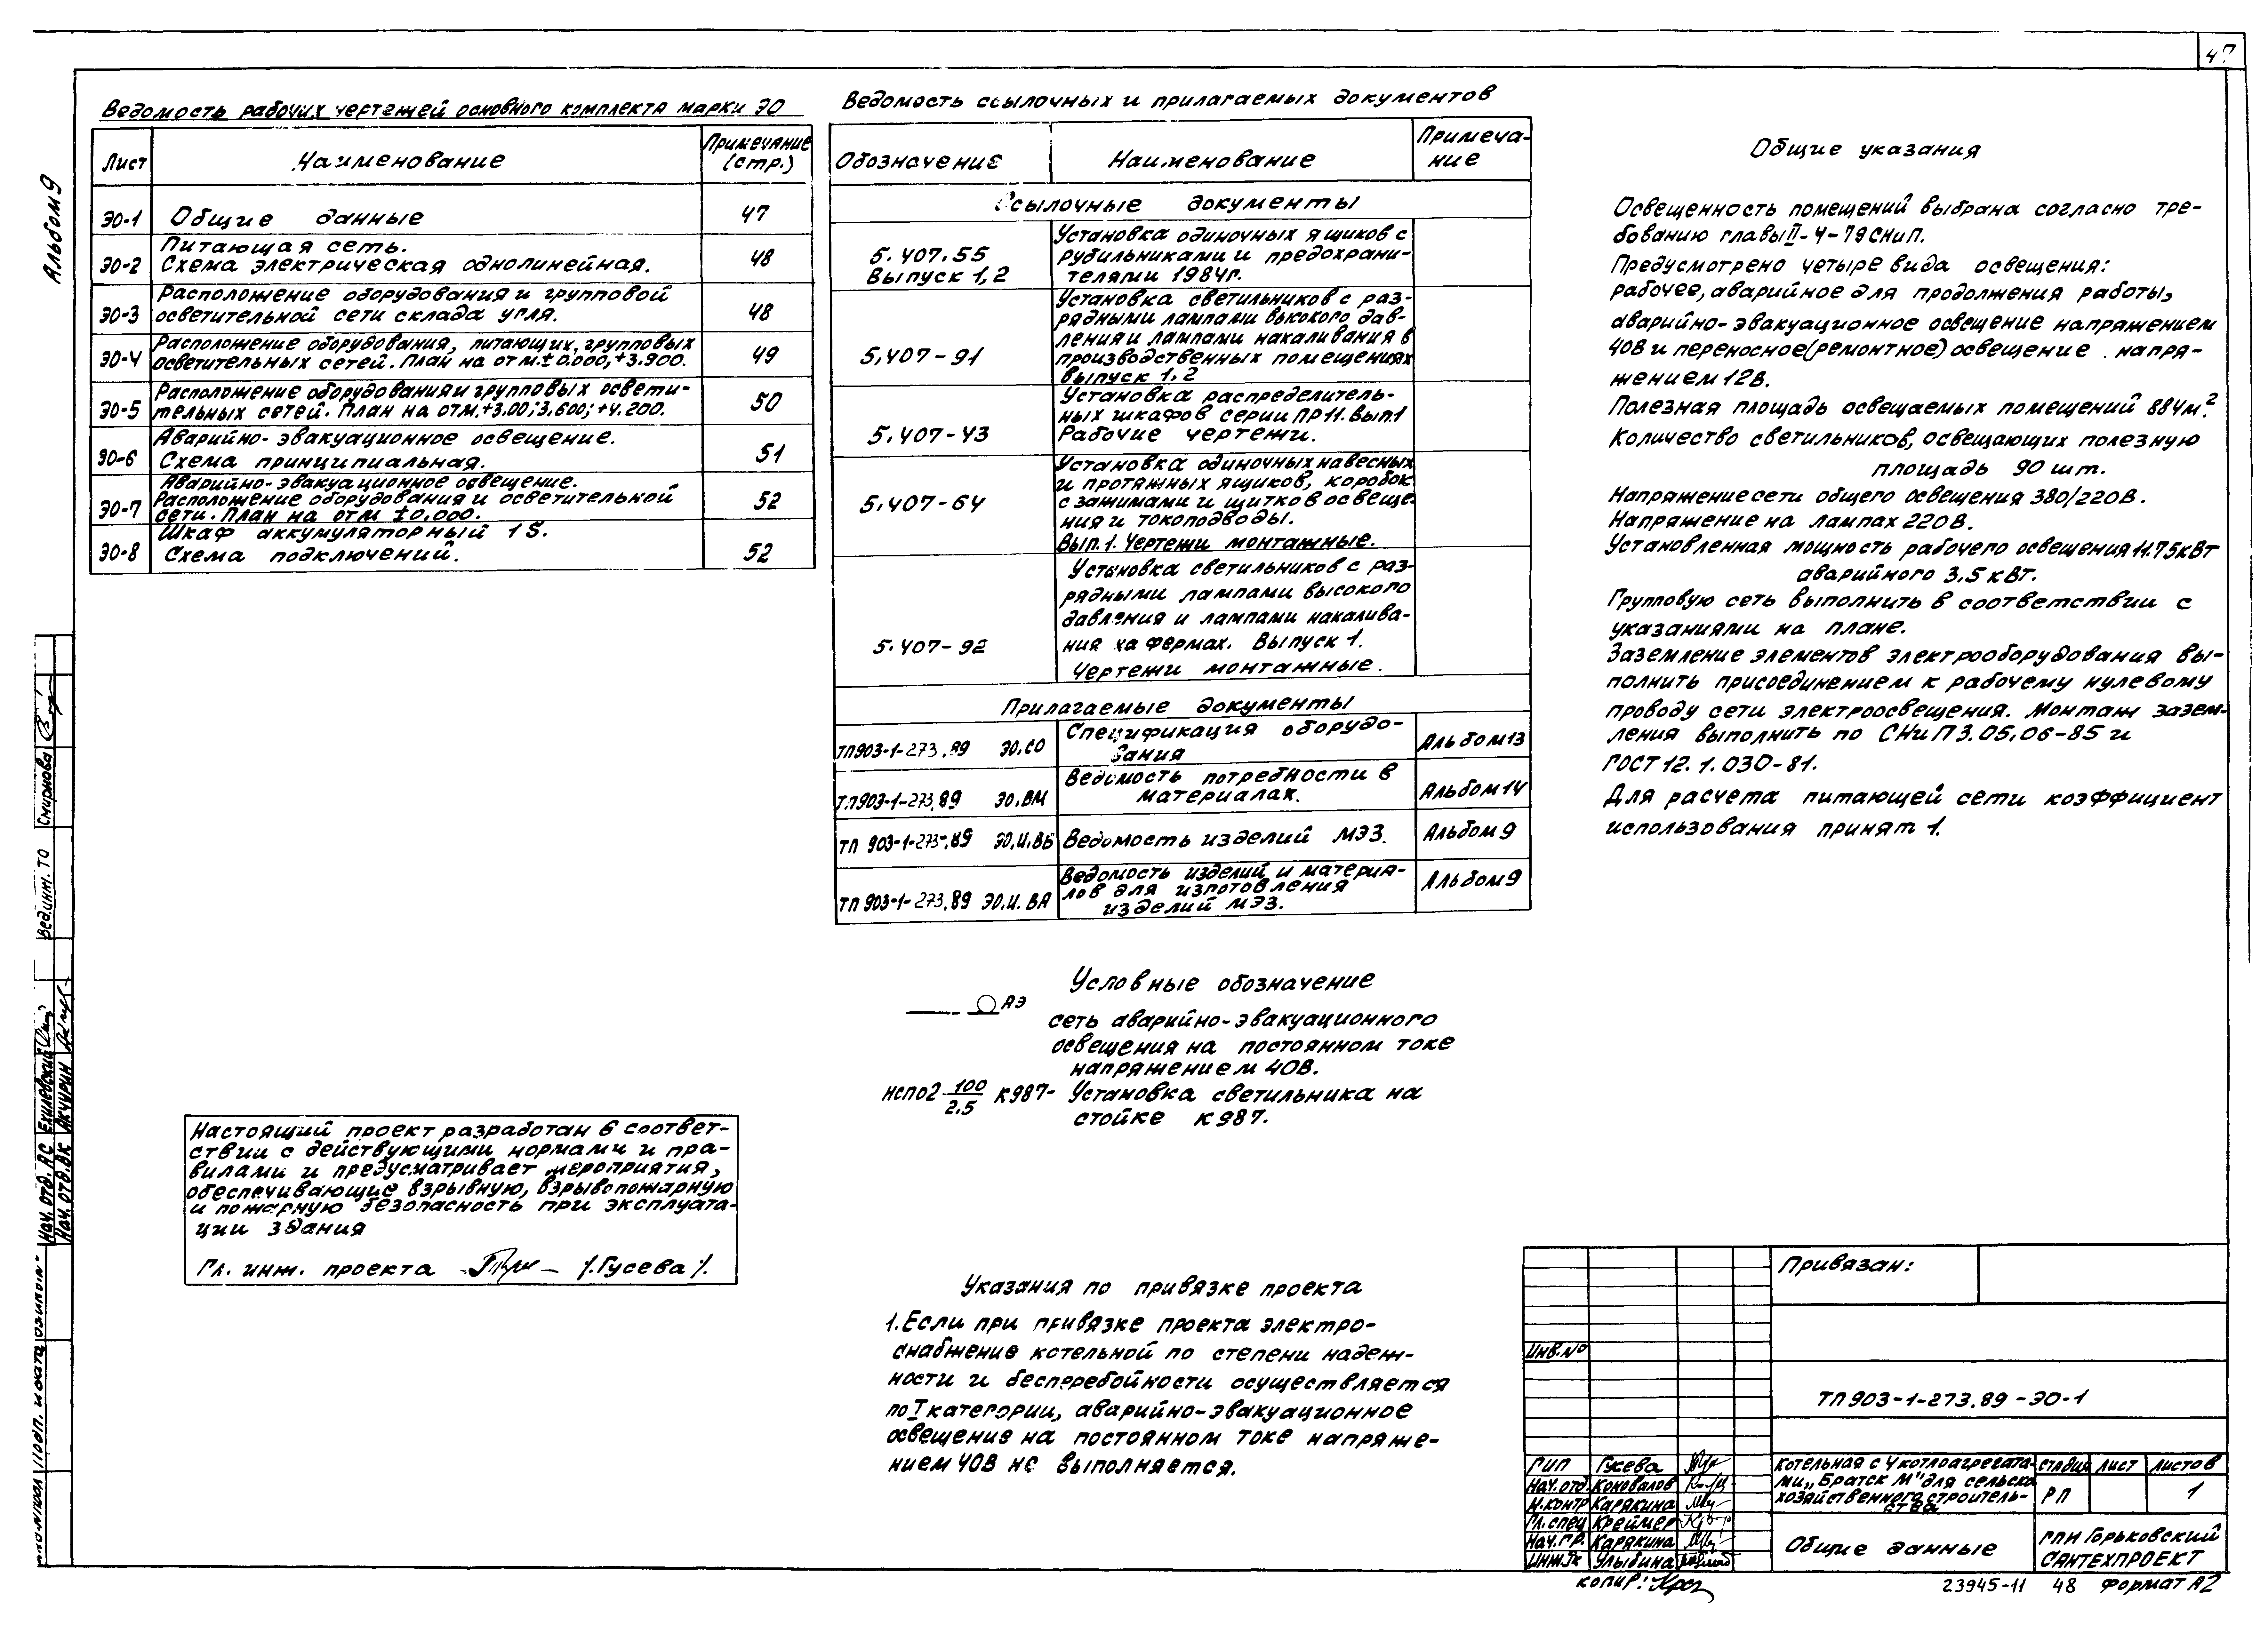 47
Альбом 9
Ведомость рабочих чертежей основного комплекта марки ЭО
Лист Наименование Примечание (стр.)
ЭО-1 Общие данные 47
Питающая сеть.
ЭО-2 Схема электрическая однолинейная. 48
Расположение оборудования и групповой
ЭО-3 осветительной сети склада угля. 48
Расположение оборудования, питающих, групповых
ЭО-4 осветительных сетей. План на отм. ±0.000, +3.900. 49
Расположение оборудования и групповых освети-
ЭО-5 тельных сетей. План на отм. +3.00; 3.600; +4.200. 50
Аварийно-эвакуационное освещение.
ЭО-6 Схема принципиальная. 51
Аварийно-эвакуационное освещение.
ЭО-7 Расположение оборудования и осветительной 52
сети. План на отм ±0.000.
Шкаф аккумуляторный 1S.
ЭО-8 Схема подключений. 52
Ведомость ссылочных и прилагаемых документов
Обозначение Наименование Примеча-
ние
Ссылочные документы
5.407.55
Выпуск 1,2
Установка одиночных ящиков с
рубильниками и предохрани-
телями 1984г.
5.407-91
Установка светильников с раз-
рядными лампами высокого дав-
ления и лампами накаливания в
производственных помещениях
Выпуск 1,2
5.407-43
Установка распределитель-
ных шкафов серии ПР11. Вып.1
Рабочие чертежи.
5.407-64
Установка одиночных навесных
и протяжных ящиков, коробок
с зажимами и щитков освеще-
ния и токоподводы.
Вып.1. Чертежи монтажные.
5.407-92
Установка светильников с раз-
рядными лампами высокого
давления и лампами накалива-
ния на фермах. Выпуск 1.
Чертежи монтажные.
Прилагаемые документы
ТП903-1-273.89 ЭО.СО Спецификация оборудо-
вания Альбом 13
ТП903-1-273.89 ЭО.ВМ Ведомость потребности в
материалах. Альбом 14
ТП 903-1-273.89 ЭО.И.ВБ Ведомость изделий МЭЗ. Альбом 9
ТП 903-1-273.89 ЭО.И.ВА Ведомость изделий и материа-
лов для изготовления
изделий МЭЗ. Альбом 9
Общие указания
Освещенность помещений выбрана согласно тре-
бованию главы II-4-79 СНиП.
Предусмотрено четыре вида освещения:
рабочее, аварийное для продолжения работы,
аварийно-эвакуационное освещение напряжением
40В и переносное (ремонтное) освещение напря-
жением 12В.
Полезная площадь освещаемых помещений 884м².
Количество светильников, освещающих полезную
площадь 90 шт.
Напряжение сети общего освещения 380/220В.
Напряжение на лампах 220В.
Установленная мощность рабочего освещения 11.75кВт
аварийного 3,5 кВт.
Групповую сеть выполнить в соответствии с
указаниями на плане.
Заземление элементов электрооборудования вы-
полнить присоединением к рабочему нулевому
проводу сети электроосвещения. Монтаж зазем-
ления выполнить по СНиП 3.05.06-85 и
ГОСТ 12.1.030-81.
Для расчета питающей сети коэффициент
использования принят 1.
Условные обозначение
АЭ
сеть аварийно-эвакуационного
освещения на постоянном токе
напряжением 40В.
НСП02 100/2.5 К987- Установка светильника на
стойке К987.
Настоящий проект разработан в соответ-
ствии с действующими нормами и пра-
вилами и предусматривает мероприятия,
обеспечивающие взрывную, взрывопожарную
и пожарную безопасность при эксплуата-
ции здания
Гл. инж. проекта /.Гусева/.
Указания по привязке проекта
1.Если при привязке проекта электро-
снабжение котельной по степени надеж-
ности и бесперебойности осуществляется
по I категории, аварийно-эвакуационное
освещение на постоянном токе напряже-
нием 40В не выполняется.
Привязан:
Инв.№
ТП903-1-273.89-ЭО-1
ГИП Гусева
Нач.отд. Коновалов
Н.контр Карякина
Гл.спец Креймер
Нач.гр. Карякина
Инж. Iк Улыбина
Котельная с 4 котлоагрегата-
ми „Братск М" для сельско
хозяйственного строитель-
ства
Стадия Лист Листов
РП 1
Общие данные
ГПИ Горьковский
САНТЕХПРОЕКТ
копир:
23945-11 48 Формат А2
Вед.инж. ТО Смирнова
Нач. отд. АС
Нач. отд. ВК Акчурин